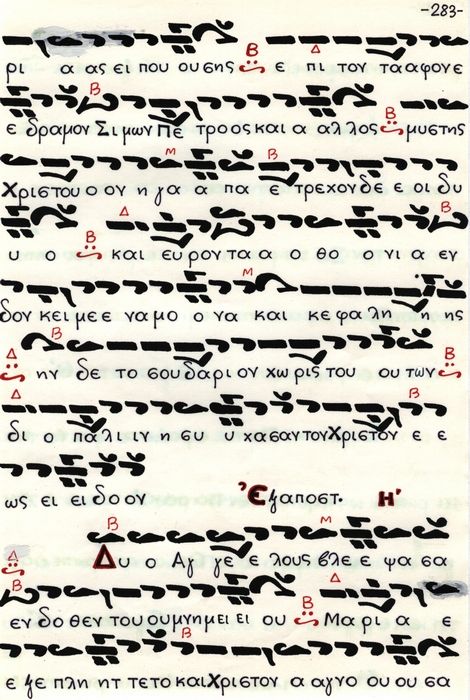 -283-
ρι α ας ει που ου σης ε πι τον τα α φον ε
ε δραμον Σι μων Πε τρο ος και α αλλος μυστης
Χριστου ου ον η γα α πα ε τρεχον δε ε οι δυ
υ ο και ευ ρον τα α ο θο ο νι α εν
δον κει με ε να μο ο να και κε φα λη η ης
ην δε το σου δα ρι ον χω ρις του ου των
δι ο πα λι ιν η συ υ χασαν τον Χριστον ε ε
ως ει ει δο ον Ἐξαποστ. Η'
Δυ ο Αγ γε ε λους βλε ε ψα σα
εν δο θεν του ου μνη μει ει ου Μα ρι α ε
ε ξε πλη ητ τε το και Χριστον α αγνο ου ου σα